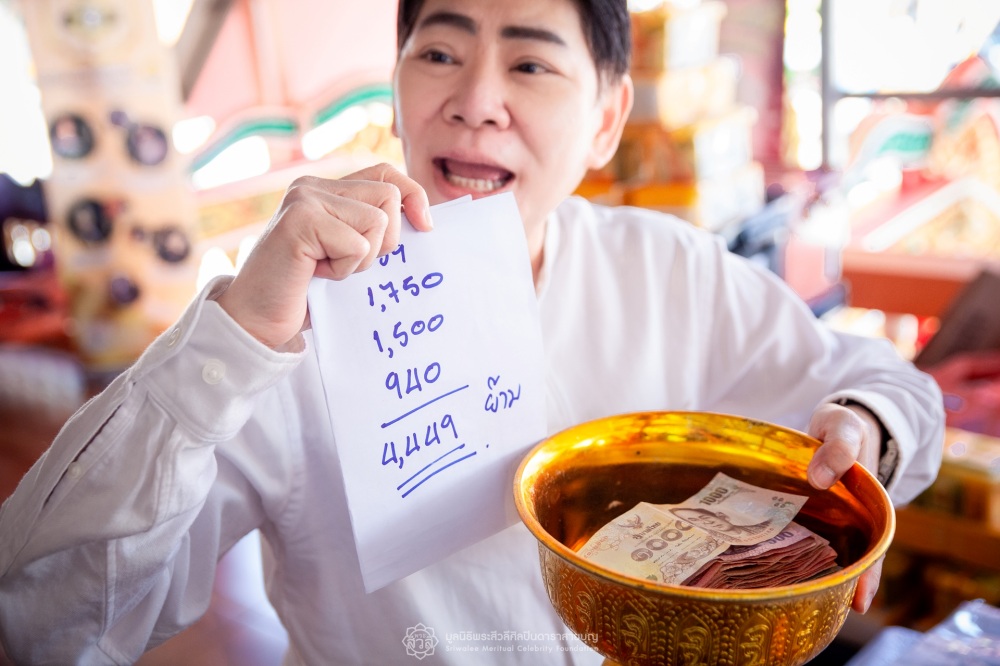 1,750
1,500
940
4,449 ย๊าม
1000
๑๐๐๐
มูลนิธิพระสิวลีศิลปินดาราสายบุญ
Sriwalee Meritual Celebrity Foundation